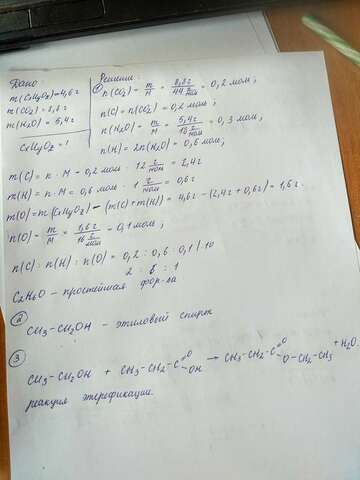 Дано:
m(CxHyOz)=4,6г
m(CO2)=8,8г
m(H2O)=5,4г
CxHyOz = ?
Решение
① n(CO2) = m/M = 8,8г / 44 г/моль = 0,2 моль;
n(C) = n(CO2) = 0,2 моль;
n(H2O) = m/M = 5,4г / 18 г/моль = 0,3 моль,
n(H) = 2n(H2O) = 0,6 моль;
m(C) = n · M = 0,2 моль · 12 г/моль = 2,4г
m(H) = n · M = 0,6 моль · 1 г/моль = 0,6г
m(O) = m(CxHyOz) – (m(C) + m(H)) = 4,6г – (2,4г + 0,6г) = 1,6г.
n(O) = m/M = 1,6г / 16 г/моль = 0,1 моль;
n(C) : n(H) : n(O) = 0,2 : 0,6 : 0,1 / ·10
2 : 6 : 1
C2H6O – простейшая фор-ла
②
CH3-CH2OH – этиловый спирт
③
CH3-CH2OH + CH3-CH2-C=O OH → CH3-CH2-C=O O-CH2-CH3 + H2O
реакция этерефикации.